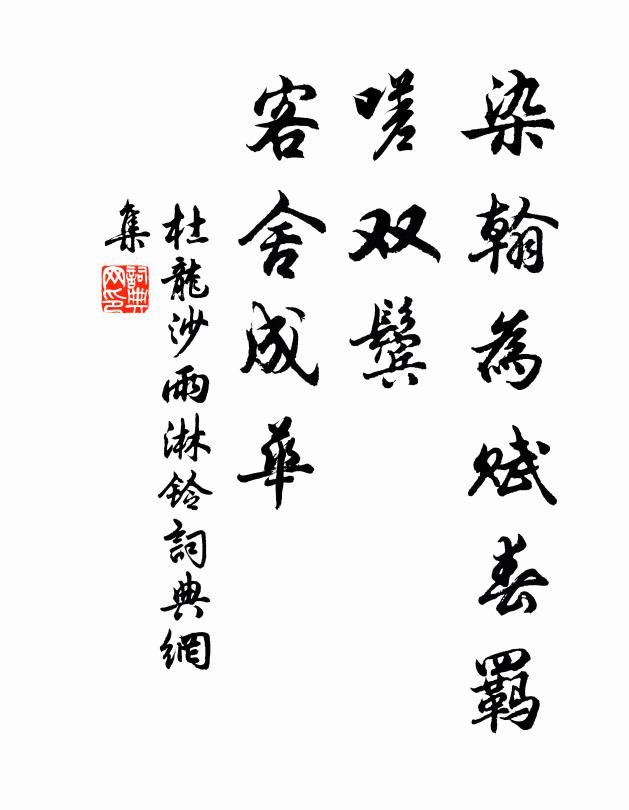 染翰為赋春羁
嗟双鬓
客舍成華
杜龍沙雨淋鈴詞典網
集
詞典網印